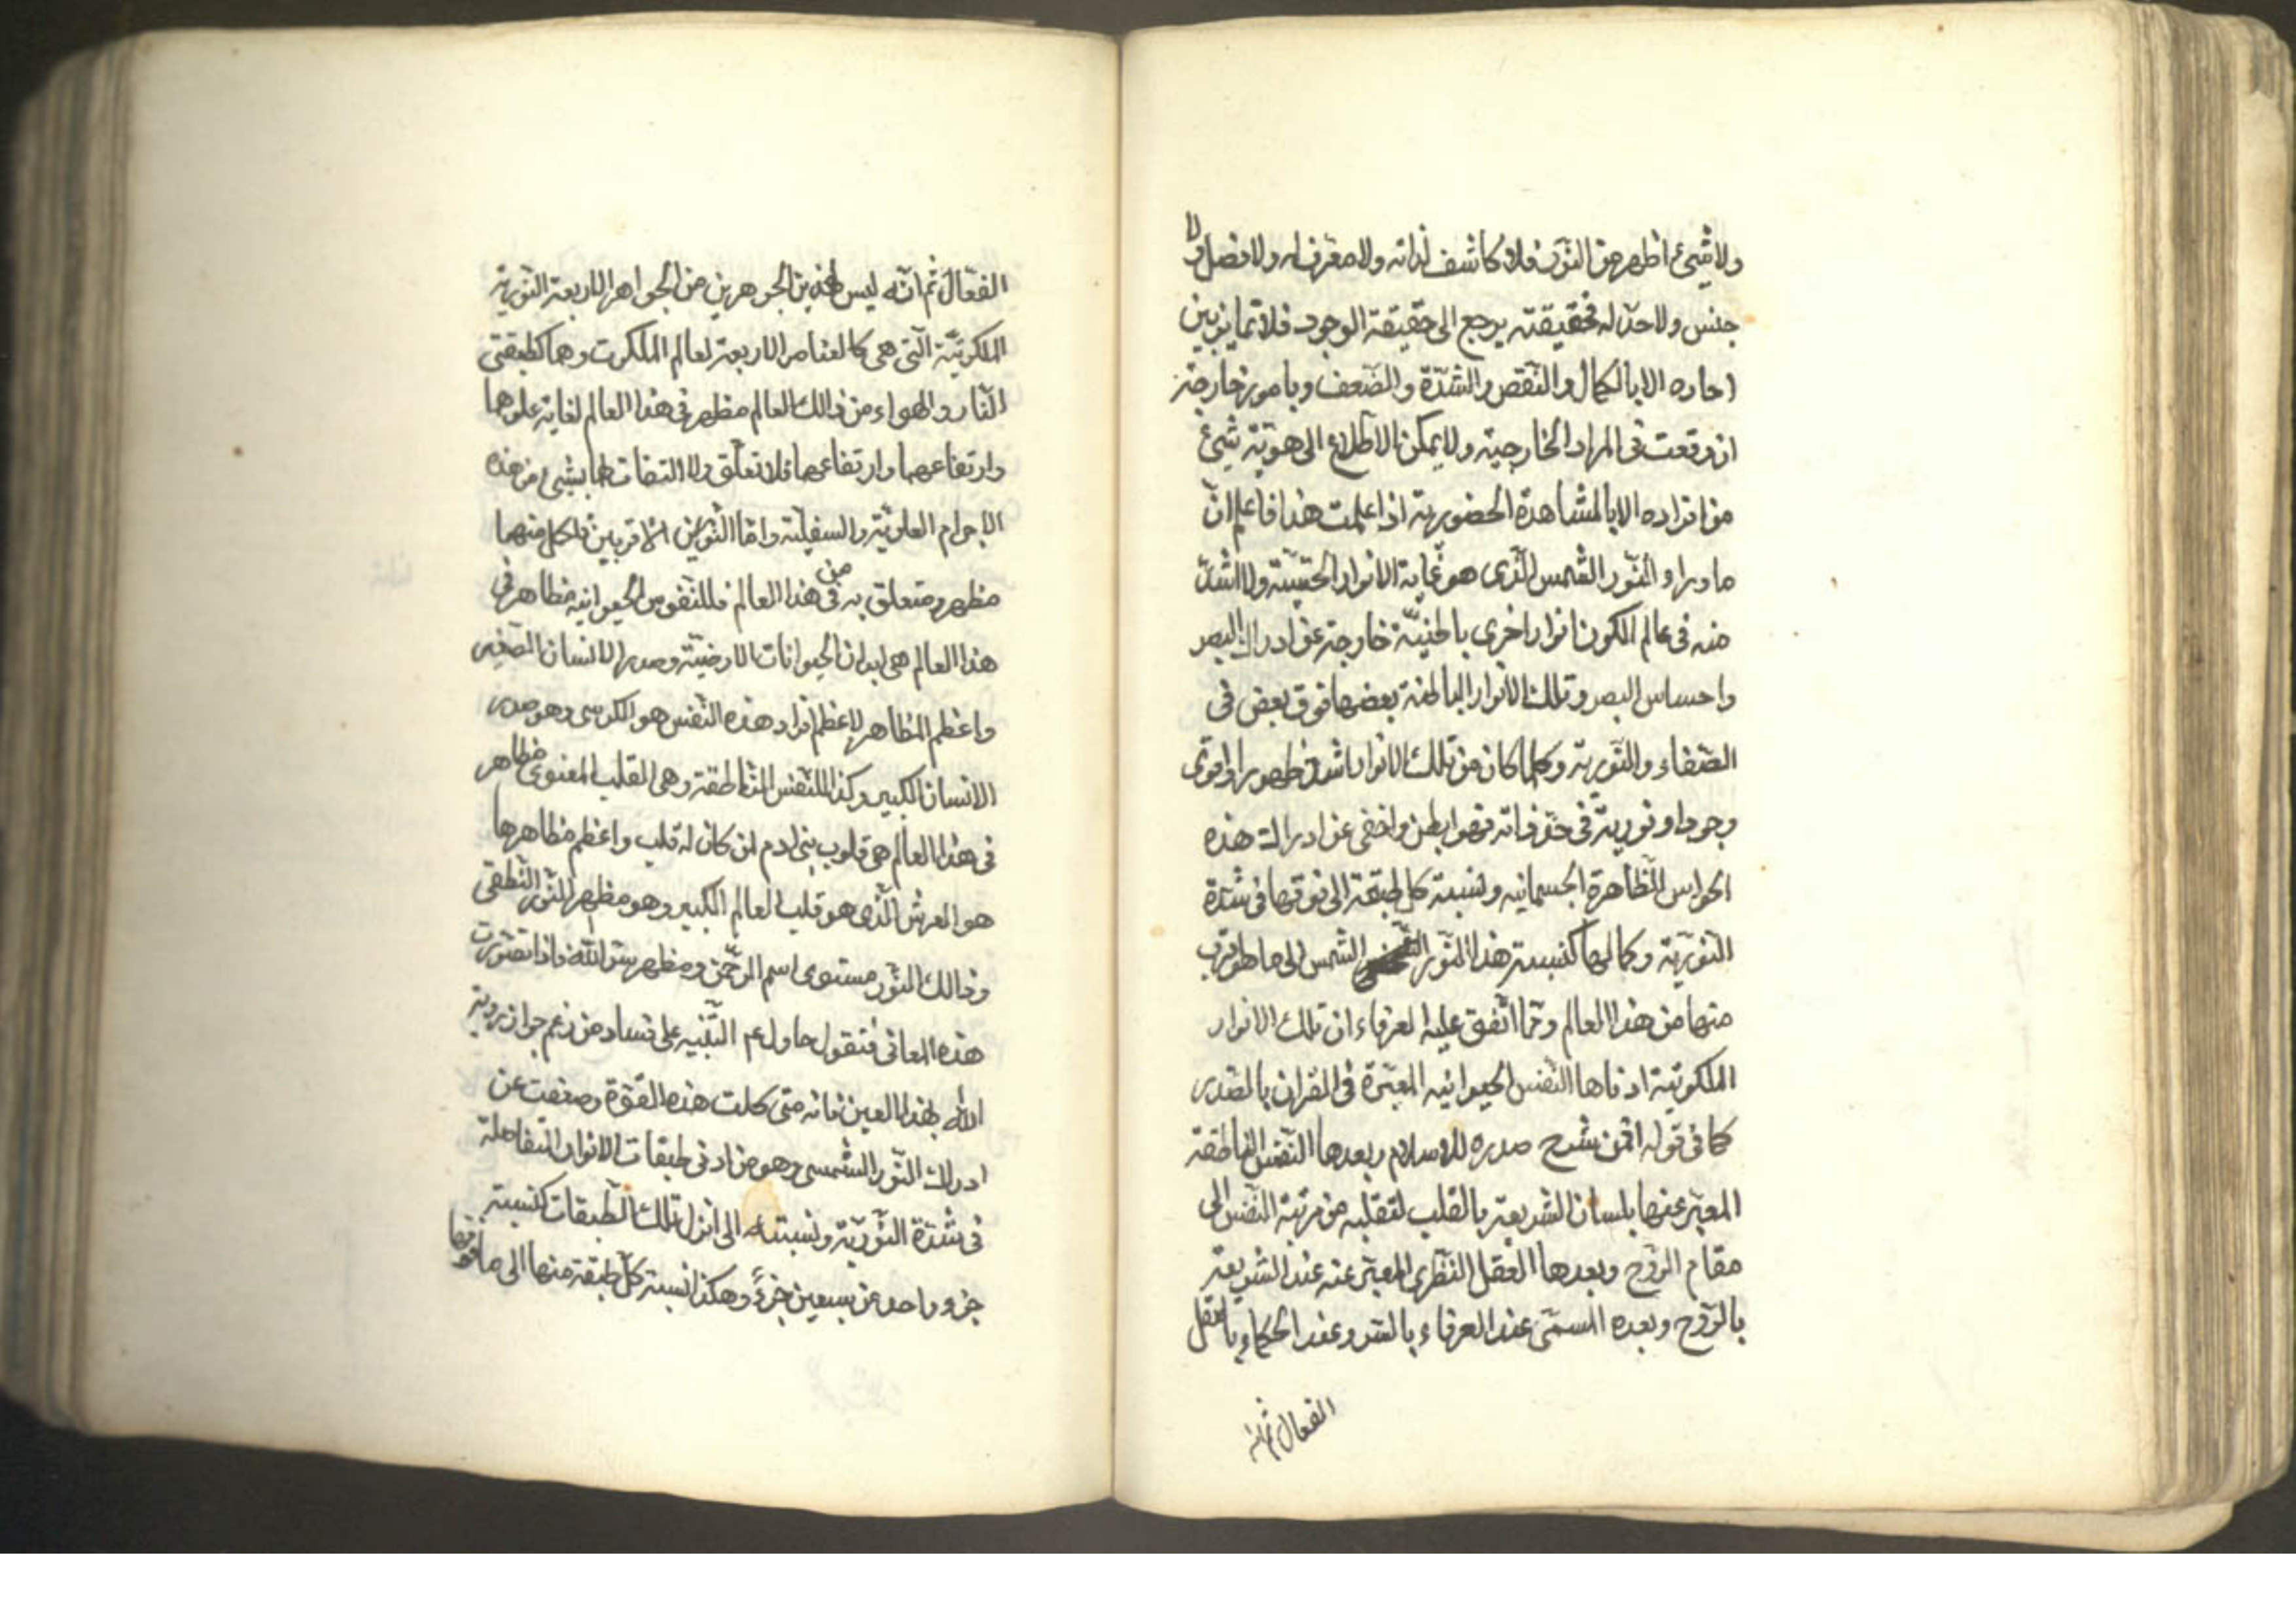 ولا شيئ اظهر من النور فلا كاشف لذاته ولا معرف له ولا فصل ولا
جنس ولا حد له فحقيقته يرجع الى حقيقة الوجود فلا تمايز بين
احاده الا بالكمال والنقص والشدة والضعف وبامور خارجة
ان وقعت فى المواد الخارجية ولا يمكن الاطلاع الى هوية شيئ
من افراده الا بالمشاهدة الحضورية اذا علمت هذا فاعلم ان
ما وراء النور الشمس الذى هو غاية الانوار الحسية ولا اشد
منه فى عالم الكون انوار اخرى باطنية خارجة عن ادراك البصر
واحساس البصر وتلك الانوار الباطنة بعضها فوق بعض فى
الصفاء والنورية وكلما كان من تلك الانوار اشد ظهورا واقوى
وجودا ونورية فى حد ذاته فهو ابطن واخفى عن ادراك هذه
الحواس الظاهرة الجسمانيه ونسبة كل طبقة الى فوقها فى شدة
النورية وكمالها كنسبة هذا النور الشمس الى ما هو قريب
منها من هذا العالم ومما اتفق عليه العرفاء ان تلك الانوار
الملكوتية ادناها النفس الحيوانيه المعبرة فى القران بالصدر
كما فى قوله افمن شرح صدره للاسلام وبعدها النفس الناطقة
المعبر عنها بلسان الشريعة بالقلب لتقلبه من مرتبة النفس الى
مقام الروح وبعدها العقل النظرى المعبر عنه عند الشريعة
بالروح وبعده المسمى عند العرفاء بالسر وعند الحكماء بالعقل
الفعال ثم انه
الفعال ثم انه ليس لهذين الجوهرين من الجواهر الاربعة النورية
الملكوتية التى هى كالعناصر الاربعة لعالم الملكوت وهما كطبقتى
النار والهواء من ذالك العالم مظهر فى هذا العالم لغاية علوهما
وارتفاعهما وارتفاعهما فلا تعلق ولا التفات لهما بشيئ من هذه
الاجرام العلوية والسفلية واما النورين الاقربين فلكل منهما
مظهر ومتعلق به من فى هذا العالم فللنفوس الحيوانيه مظاهر فى
هذا العالم هى ابدان الحيوانات الارضية وصدر الانسان الصغير
واعظم المظاهر لاعظم افراد هذه النفس هو الكرسى وهو صدر
الانسان الكبير وكذا للنفس الناطقة وهى القلب المعنوى مظاهر
فى هذا العالم هى قلوب بنى ادم لمن كان له قلب واعظم مظاهرها
هو العرش الذى هو قلب العالم الكبير وهو مظهر النور النطقى
وذالك النور مستوى اسم الرحمن ومظهر سر الله فاذا تصورت
هذه المعانى فنقول حاول ع م التنبيه على فساد من زعم جواز روية
الله بهذا العين فانه متى كلت هذه القوة وضعفت عن
ادراك النور الشمسى وهو من ادنى طبقات الانوار المتفاضلة
فى شدة النورية ونسبته الى انزل تلك الطبقات كنسبة
جزو واحد من سبعين جزءً وهكذا نسبة كل طبقة منها الى ما فوقها